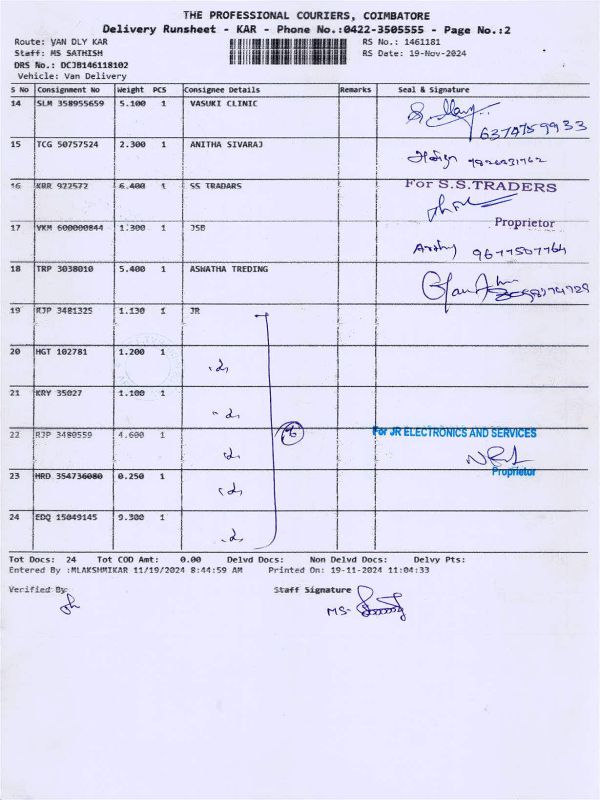 THE PROFESSIONAL COURIERS, COIMBATORE
Delivery Runsheet - KAR - Phone No.:0422-3505555 - Page No.:2
Route: VAN DLY KAR RS No.: 1461181
Staff: MS SATHISH RS Date: 19-Nov-2024
DRS No.: DCJB146118102
Vehicle: Van Delivery
S No Consignment No Weight PCS Consignee Details Remarks Seal & Signature
14 SLM 358955659 5.100 1 VASUKI CLINIC
15 TCG 50757524 2.300 1 ANITHA SIVARAJ
16 KRR 922572 6.400 1 SS TRADARS For S.S.TRADERS
Proprietor
17 VKM 600000844 1.300 1 JSB
18 TRP 3038010 5.400 1 ASWATHA TREDING
19 RJP 3481325 1.130 1 JR
20 HGT 102781 1.200 1
21 KRY 35027 1.100 1
22 RJP 3480559 4.600 1 For JR ELECTRONICS AND SERVICES
Proprietor
23 HRD 354736080 0.250 1
24 EDQ 15049145 9.300 1
Tot Docs: 24 Tot COD Amt: 0.00 Delvd Docs: Non Delvd Docs: Delvy Pts:
Entered By :MLAKSHMIKAR 11/19/2024 8:44:59 AM Printed On: 19-11-2024 11:04:33
Verified By: Staff Signature
MS-